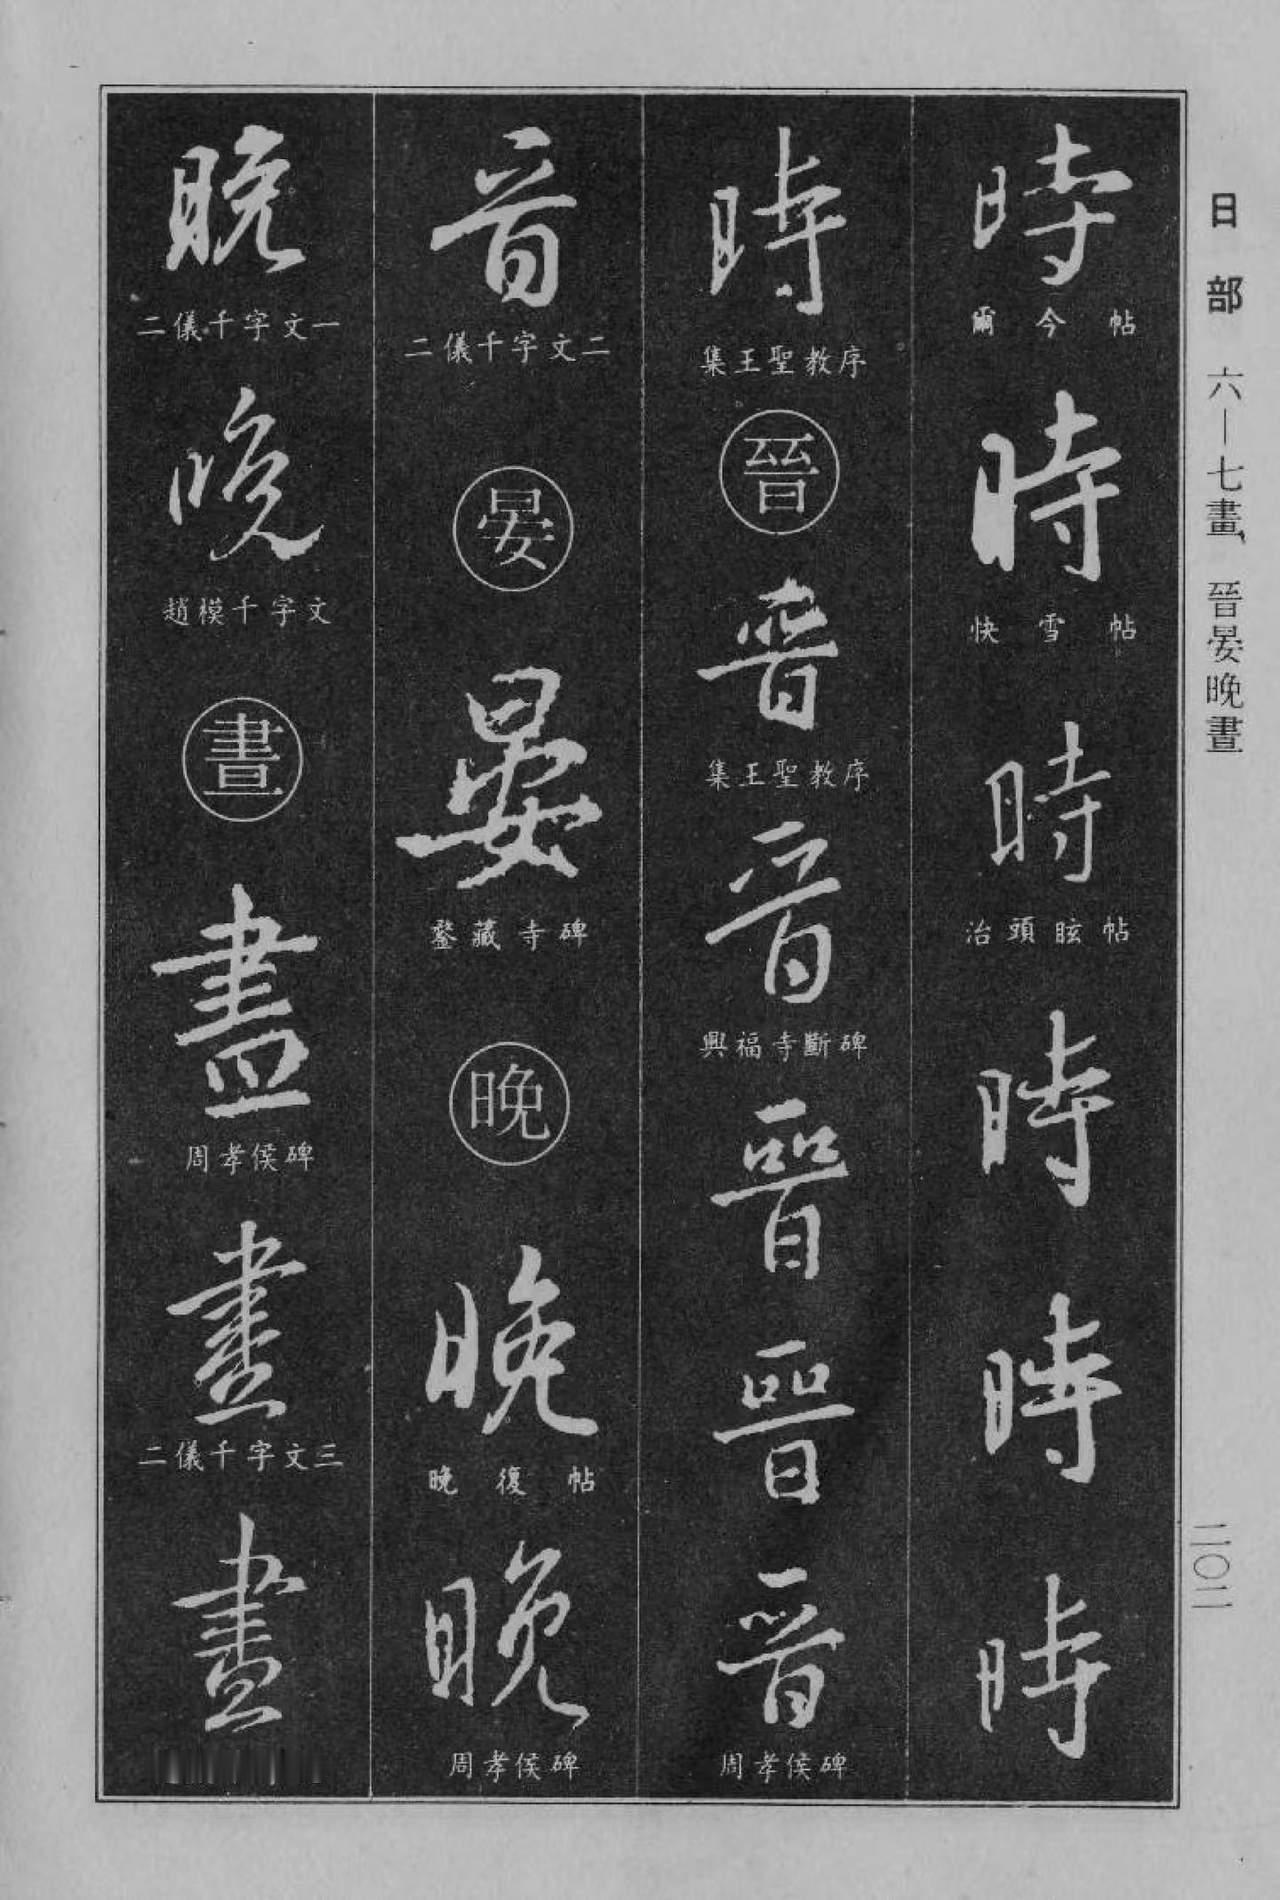 日部 六—七畫、晉晏晚晝
二〇二
時
爾今帖
時
快雪帖
時
治頭眩帖
時
時
時
時
集王聖教序
晉
晉
集王聖教序
晉
興福寺斷碑
晉
晉
晉
周孝侯碑
晉
二儀千字文二
晏
晏
鍳藏寺碑
晚
晚
晚復帖
晚
周孝侯碑
晚
二儀千字文一
晚
趙模千字文
晝
晝
周孝侯碑
晝
二儀千字文三
晝